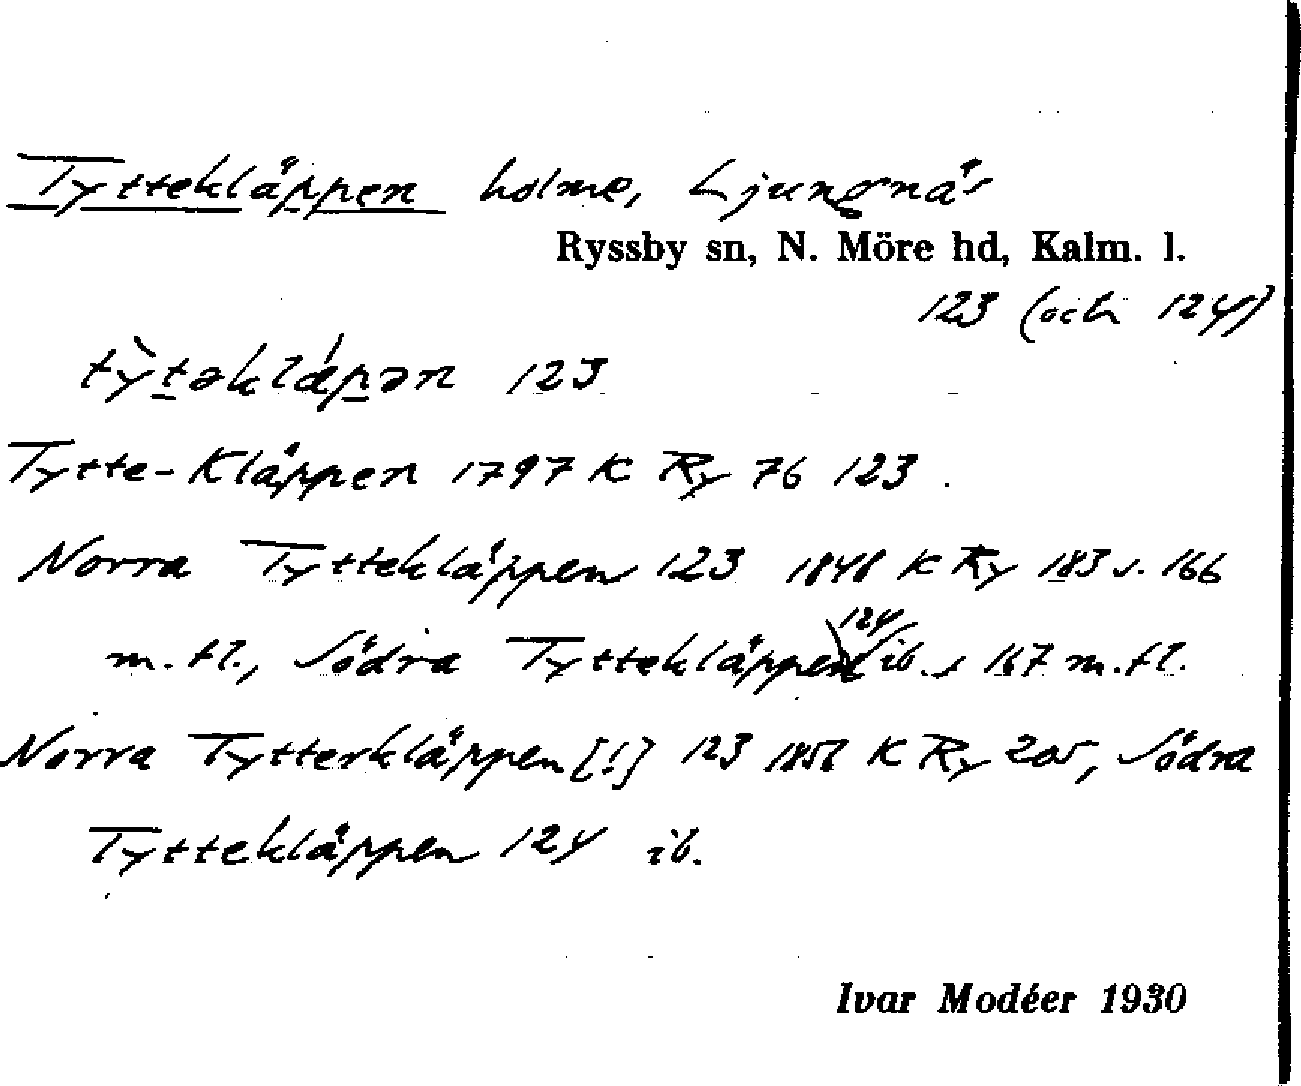 Tyttekläppen holme, Ljungnäs
Ryssby sn, N. Möre hd, Kalm. l.
123 (och 124)
tỳtəklápən 123
Tytte-Kläppen 1797 K Ry 76 123.
Norra Tyttekläppen 123 1848 K Ry 183 s. 166
m. fl., Södra Tyttekläppen 124 ib. s 167 m. fl.
Norra Tytterkläppen [!] 123 1858 K Ry 205, Södra
Tyttekläppen 124 ib.
Ivar Modéer 1930